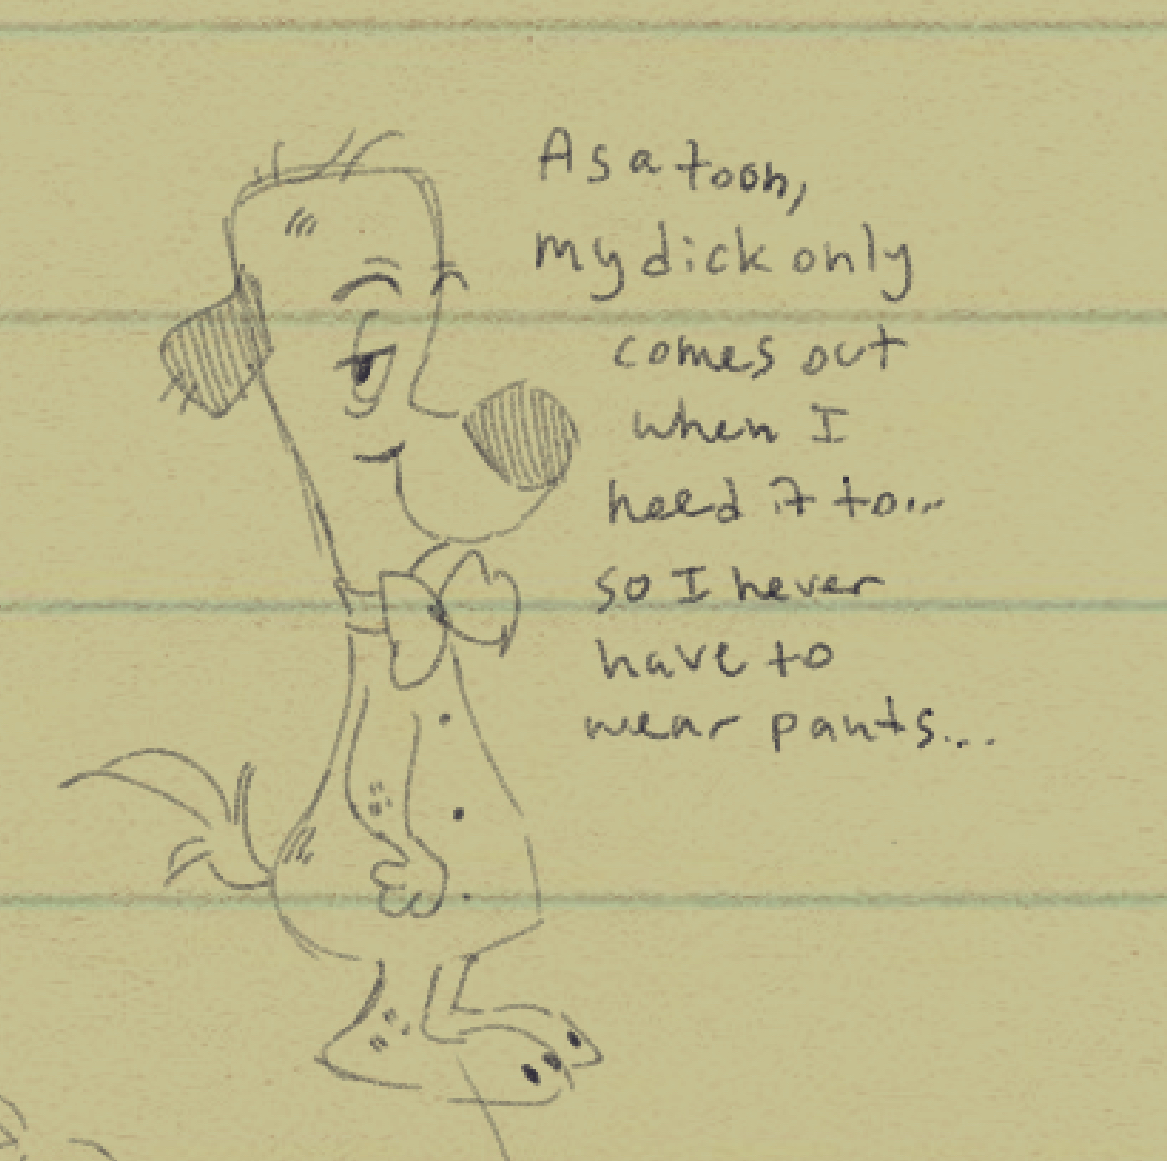 As a toon,
my dick only
comes out
when I
need it to...
so I never
have to
wear pants...